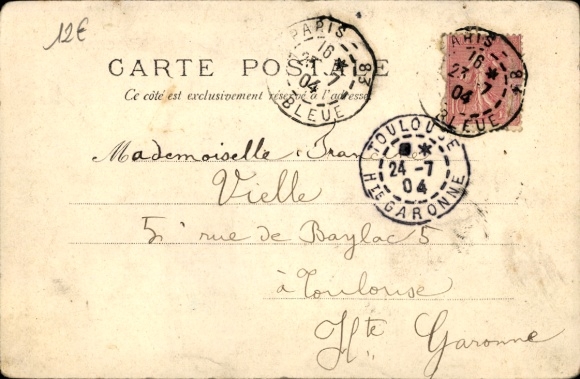 12€
PARIS - 83
16 *
23 - 7
04
BLEUE
PARIS - 83
16 *
23 - 7
04
BLEUE
CARTE POSTALE
Ce côté est exclusivement réservé à l'adresse
TOULOUSE
*
24 - 7
04
Hte GARONNE
Mademoiselle
Vielle
5 rue de Baylac 5
à Toulouse
Hte Garonne